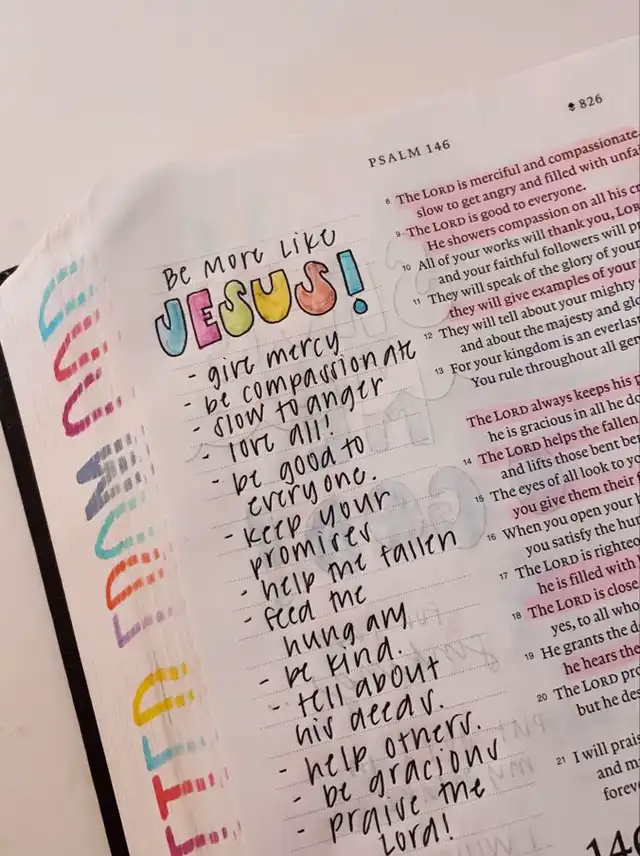 826
PSALM 146
BE MORE LIKE
JESUS!
- give mercy
- be compassionate
- slow to anger
- love all!
- be good to
everyone.
- keep your
promises
- help the fallen
- feed the
hungry
- be kind.
- tell about
his deeds.
- help others.
- be gracious
- praise the
Lord!
8 The LORD is merciful and compassionate,
slow to get angry and filled with
9 The LORD is good to everyone.
He showers compassion on all his
10 All of your works will thank you, LORD
and your faithful followers will
11 They will speak of the glory of your
they will give examples of your
12 They will tell about your mighty
and about the majesty and
13 For your kingdom is an
You rule throughout all
The LORD always keeps his
he is gracious in all he
14 The LORD helps the fallen
and lifts those bent
15 The eyes of all look to
you give them their
16 When you open your
you satisfy the
17 The LORD is
he is filled with
18 The LORD is close
yes, to all who
19 He grants the
he hears the
20 The LORD
but he
21 I will
and